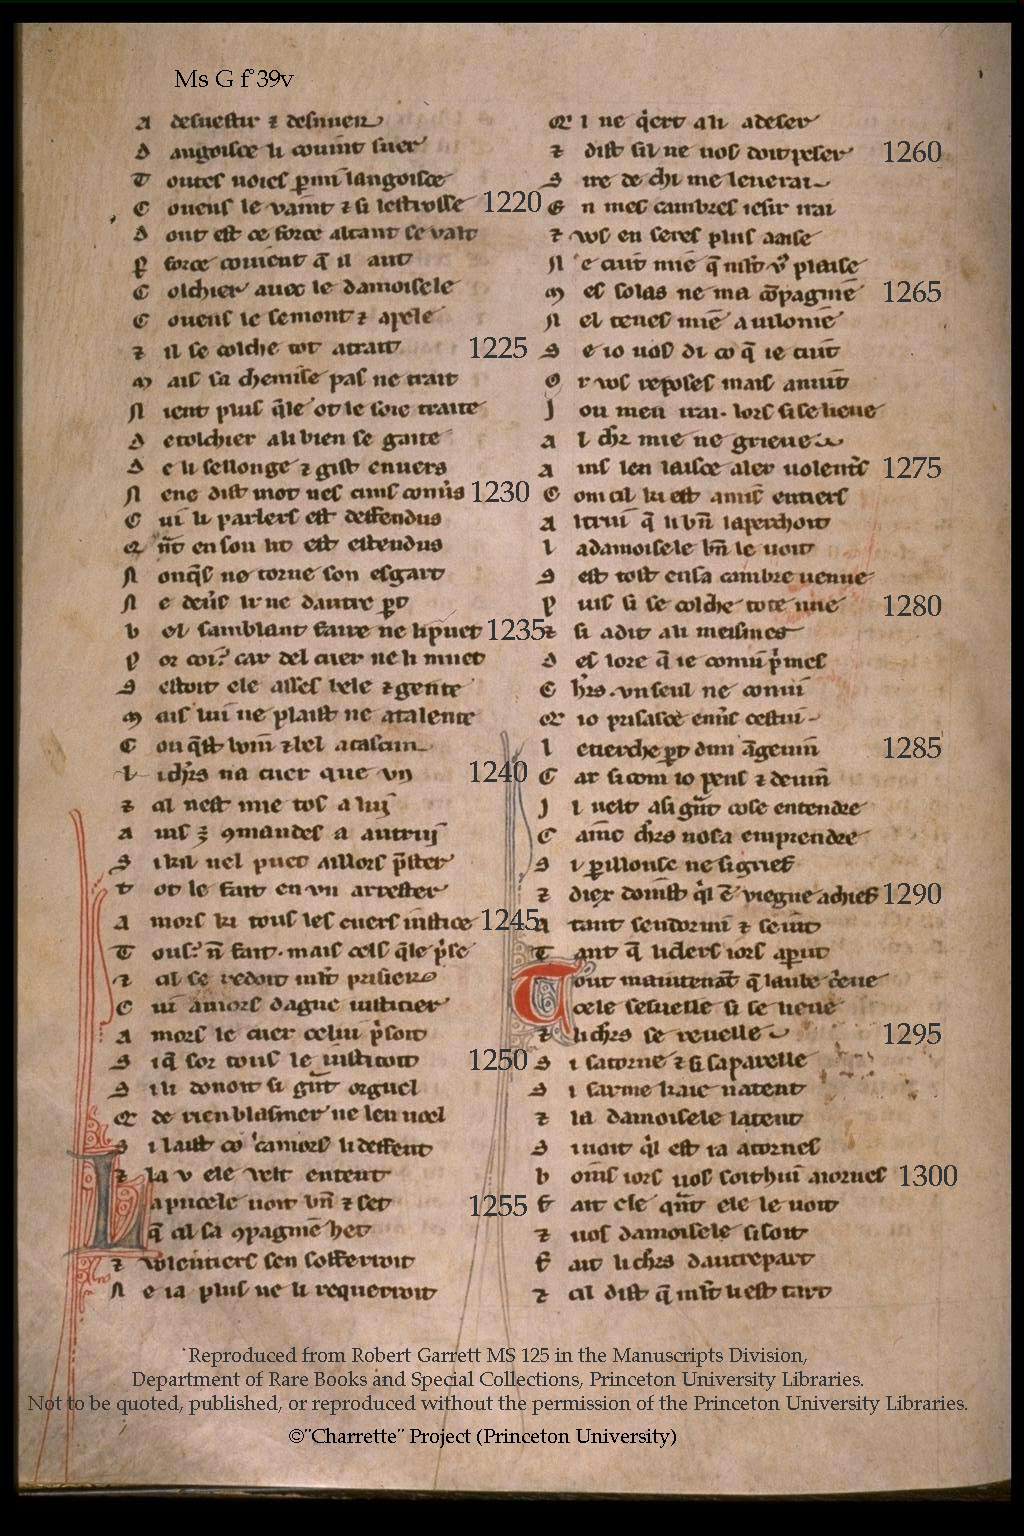 Ms G f°39v
A desuestir ⁊ desnuer
D angoisce li couint suer
T outes uoies ꝑmi langoisce
C ouens le vaint ⁊ si lestroisse
1220
D ont est ce force altant se valt
P force couient q̄ il aut
C olchier auec le damoisele
C ouens le semont ⁊ apele
⁊ il se colche tot atrait
1225
M ais sa chemise pas ne trait
N ient plus q̄le ot le soie traite
D etolchier a li bien se gaite
D e li sellonge ⁊ gist enuers
N ene dist mot nes c̄uns conuers
1230
C ui li parlers est deffendus
Q n̄t en son lit est estendus
N onq̄s no torne son esgart
N e deuers li ne dautre ꝑt
b el samblant faire ne li puet
1235
P or coi? car del cuer ne li muet
S estoit ele asses bele ⁊ gente
M ais lui ne plaist ne atalente
C ou q̄st bom ⁊ bel a cascun
L i ch̄rs na cuer que vn
1240
⁊ cil nest mie tos a luj
A ins ÷ ꝯmandes a autruj
S ikil nel puet aillors p̄ster
T ot le fait en vn arrester
A mors ki tous les cuers iustice
1245
T ous? n̄ fait. mais cels q̄le prise
⁊ cil se redoit mlt̄ prisier
C ui amors dagne iusticier
A mors le cuer celui prisoit
S i q̄ sor tous le iusticoit
1250
S i li donoit si gn̄t orguel
Q de rien blasmer ne len uoel
S i laist co camors li deffent
⁊ la v ele velt entent
L a pucele uoit bn̄ ⁊ set
1255
q̄ cil sa ꝯpagnie het
⁊ volentiers sen sofferroit
N e ia plus ne li requerroit
Q l ne qiert a li adeser
⁊ dist sil ne uos doit peser
1260
S ire de chi me leuerai
E n mes cambres iesir irai
⁊ vos en seres plus aaise
N e cuit mie q̄ mlt̄ v9 plaise
M es solas ne ma cōpagnie
1265
N el tenes mie a uilonie
S e io uos di co q̄ ie cuit
O r vos reposes mais anuit
J ou men irai. lors si se lieue
A l ch̄r mie ne grieue
A ins len laisce aler uolentrs
1275
C om cil ki est amis entiers
A ltrui q̄ li bn̄ laperchoit
L adamoisele bn̄ le uoit
S est tost en sa cambre uenue
P uis si se colche tote nue
1280
⁊ si a dit a li meismes
D es lore q̄ ie comui primes
C h̄rs .vn seul ne conui
Q io prisasce enuers cestui
L e tierche ꝑt dun āgeuin
1285
C ar si com io pens ⁊ deuin
J l uelt a si gn̄t cose entendre
C ainc ch̄rs nosa emprendre
S i ꝑillouse ne si grief
⁊ diex doinst qil ē viegne a chief
1290
A tant sendormi ⁊ se iut
T ant q̄ li clers iors aparut
T out maintenāt q̄ laube crieue
cele sesuelle si se lieue
⁊ li ch̄rs se reuelle
1295
S i satorne ⁊ si saparelle
S i sarme ke nient natent
⁊ la damoisele latent
S i uoit qil est ia atornes
b oins iors uos soit hui aiornes
1300
F ait ele qn̄t ele le uoit
⁊ uos damoisele si soit
F ait li ch̄rs dautre part
⁊ cil dist q̄ mlt̄ li est tart
Reproduced from Robert Garrett MS 125 in the Manuscripts Division,
Department of Rare Books and Special Collections, Princeton University Libraries.
Not to be quoted, published, or reproduced without the permission of the Princeton University Libraries.
©"Charrette" Project (Princeton University)